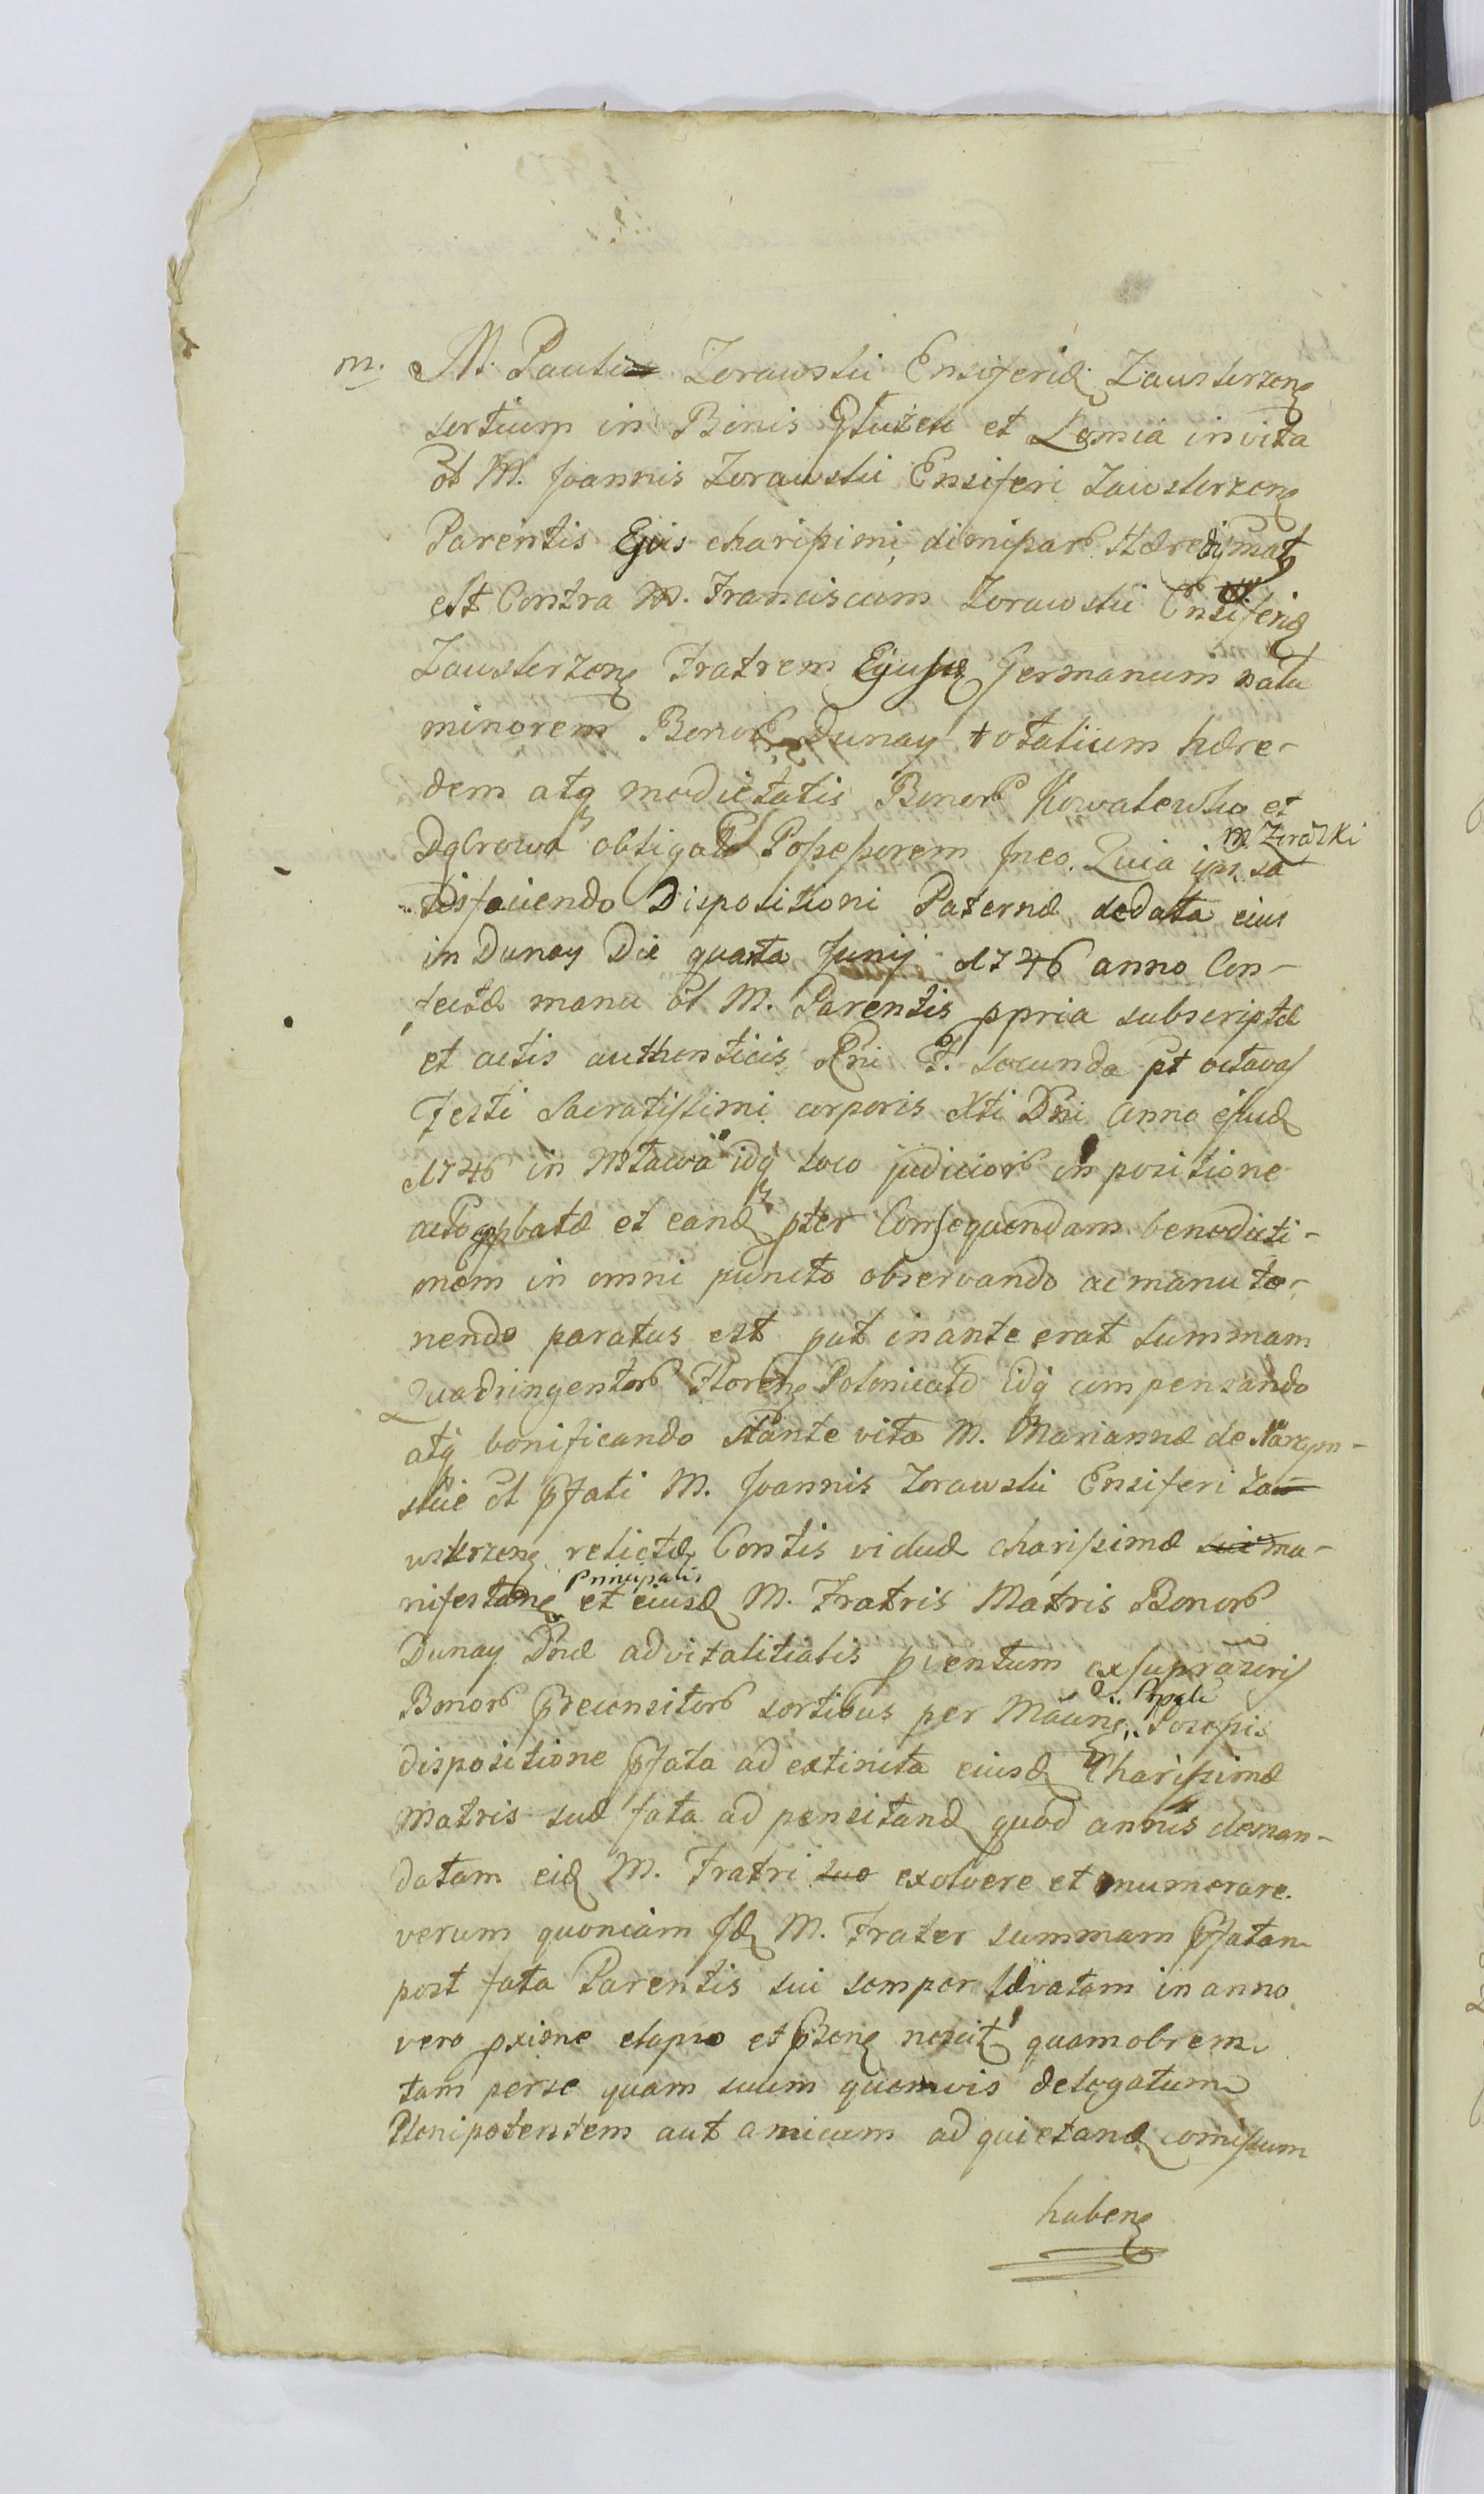 m. M. Pauli Zorawski Ensiferid Zauskrzen
sortium in Bonis Gluzek et Lomia in vita
ol M. Joannis Zorawski Ensiferi Zawskrzen
Parentis Ejus charissimi dimissar Hæredis mat
est Contra M. Franciscum Zorawski Ensiferid
Zauskrzen Fratrem Ejusd Germanum natu
minorem Bonor Dunay totalium hære-
dem atq medietatis Bonor Kowalewko et
Dąbrowa obligat Possessorem Ineo. Quia ipse M. Zorawski sa
tisfaciendo Dispositioni Paternæ de data eius
in Dunay Die quarta Junij 1746 anno Con-
fectæ manu ol M. Parentis ppria subscriptæ
et actis authenticis Pni F. secunda pt octavas
festi Sacratissimi corporis Xti Dni Anno ejusd
1746 in Mława idq loco judicior in positione
acto ppbatæ et eand pter Consequendam benedicti-
onem in omni puncto observando ac manu te-
nendo paratus est put in ante erat summam
Quadringentor Floren Polonicald idq compensando
atq bonificando stante vita M. Mariannæ de Narzym-
skie ol pfati M. Joannis Zorawski Ensiferi Za
wskrzen relictæ Contis viduæ charissimæ sui ma-
nifestan Principalis et eiusd M. Fratris Matris Bonor
Dunay Dnæ advitalitialis pventum ex
Bonor Præcensitor sortibus per Ppali
dispositione pfata ad extincta eiusd Charissimæ
Matris suæ fata ad pensitand quod annis deman-
datam eid M. Fratri suo exolvere et enumerare.
verum quoniam Id M. Frater summam pfatam
post fata Parentis sui semper levatam in anno
vero pxime elapso et psen nescit quamobrem
tam per se quam suum quemvis delegatum
Plenipotentem aut amicum ad quietand comissum
haben